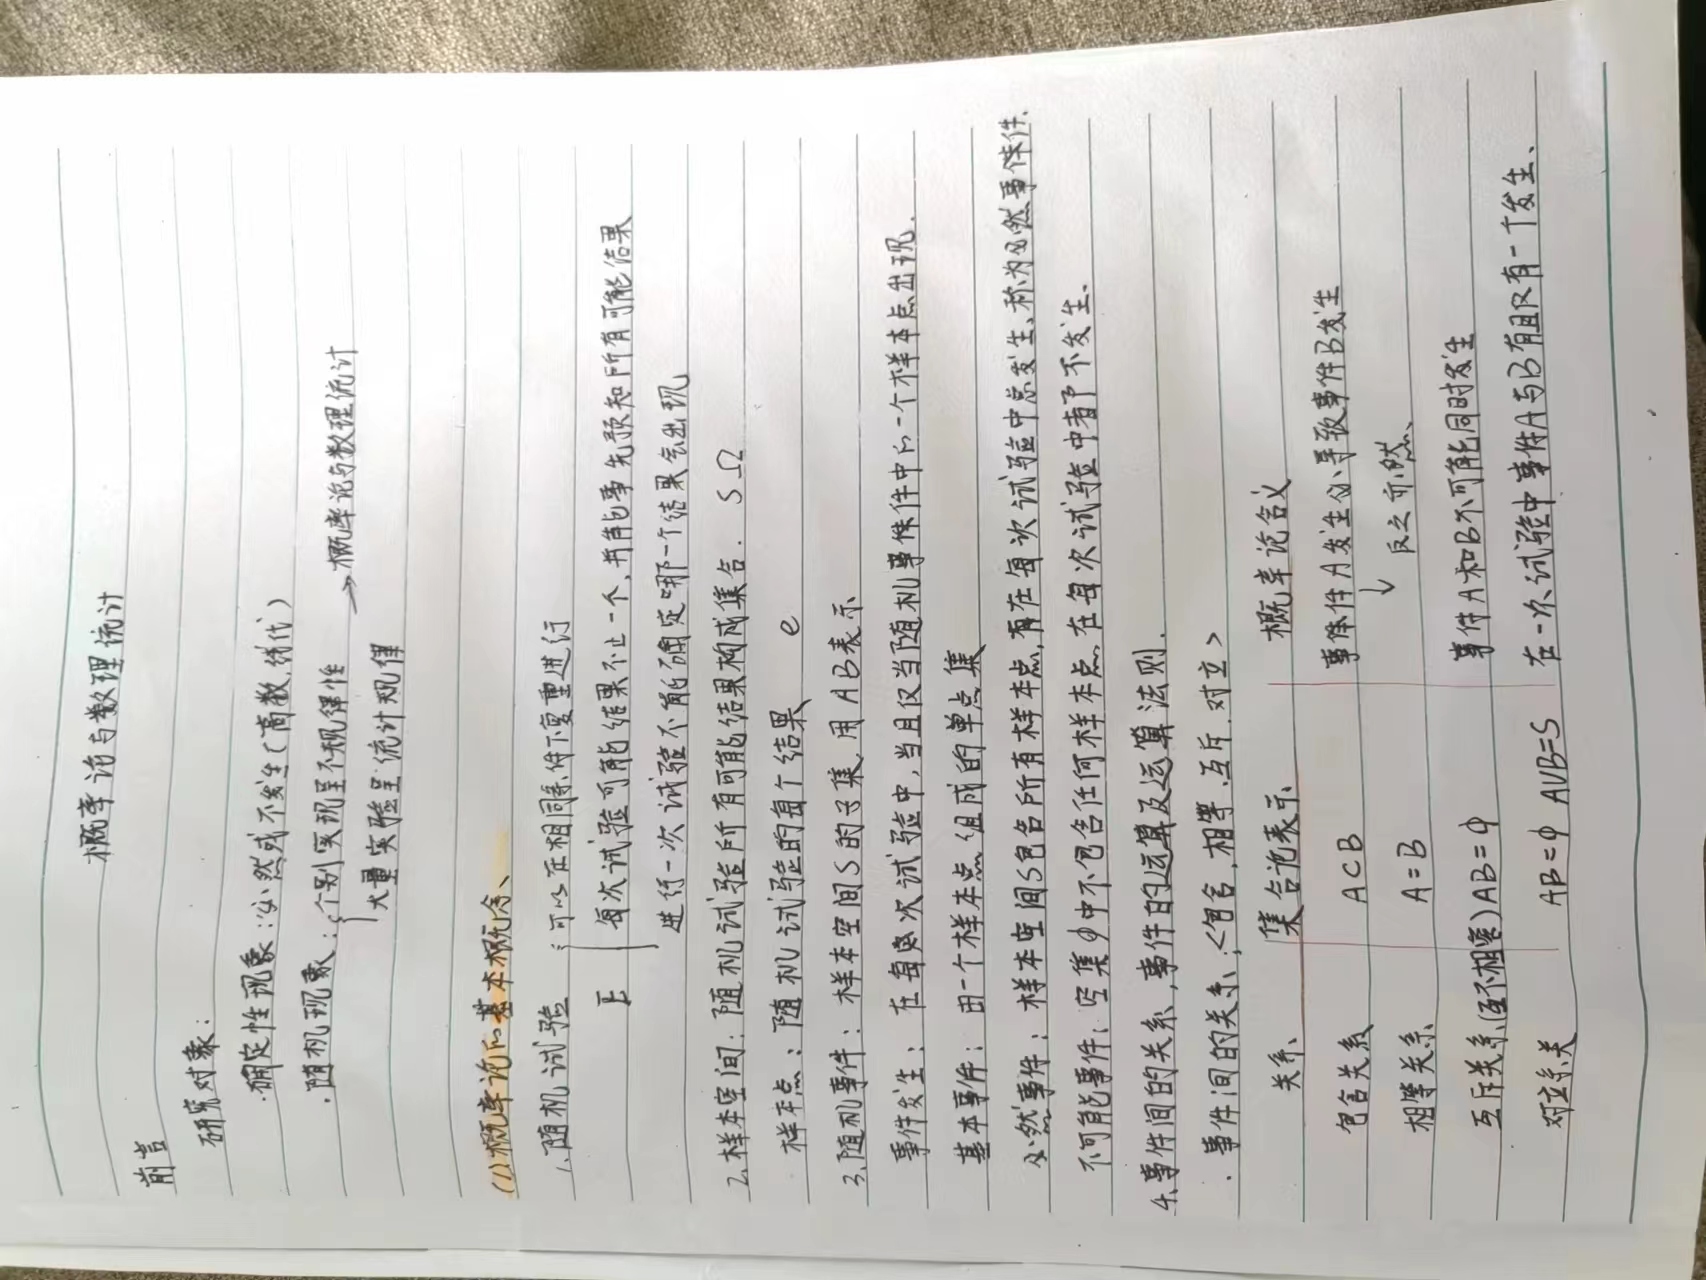 概率论与数理统计
前言
研究对象:
·确定性现象:必然或不发生(高数,线代)
·随机现象:个别实现呈不规律性
大量实验呈统计规律 → 概率论与数理统计
(1)概率论的基本概念、
1.随机试验 E
可以在相同条件下复重进行
每次试验可能结果不止一个,并能事先预知所有可能结果
进行一次试验不能确定哪一个结果会出现
2.样本空间:随机试验所有可能结果构成集合. S Ω
样本点:随机试验的每个结果 e
3.随机事件:样本空间S的子集,用AB表示
事件发生:在每次试验中,当且仅当随机事件中的一个样本点出现.
基本事件:由一个样本点组成的单点集
必然事件:样本空间S包含所有样本点,在每次试验中总发生、称为必然事件.
不可能事件:空集φ中不包含任何样本点,在每次试验中都不发生.
4.事件间的关系,事件的运算及运算法则.
·事件间的关系:<包含,相等.互斥.对立>
关系 集合论表示 概率论含义
包含关系 A⊂B 事件A发生必导致事件B发生
相等关系 A=B ↓ 反之亦然、
互斥关系(互不相容) AB=φ 事件A和B不可能同时发生
对立系关 AB=φ A∪B=S 在一次试验中事件A与B有且仅有一个发生、